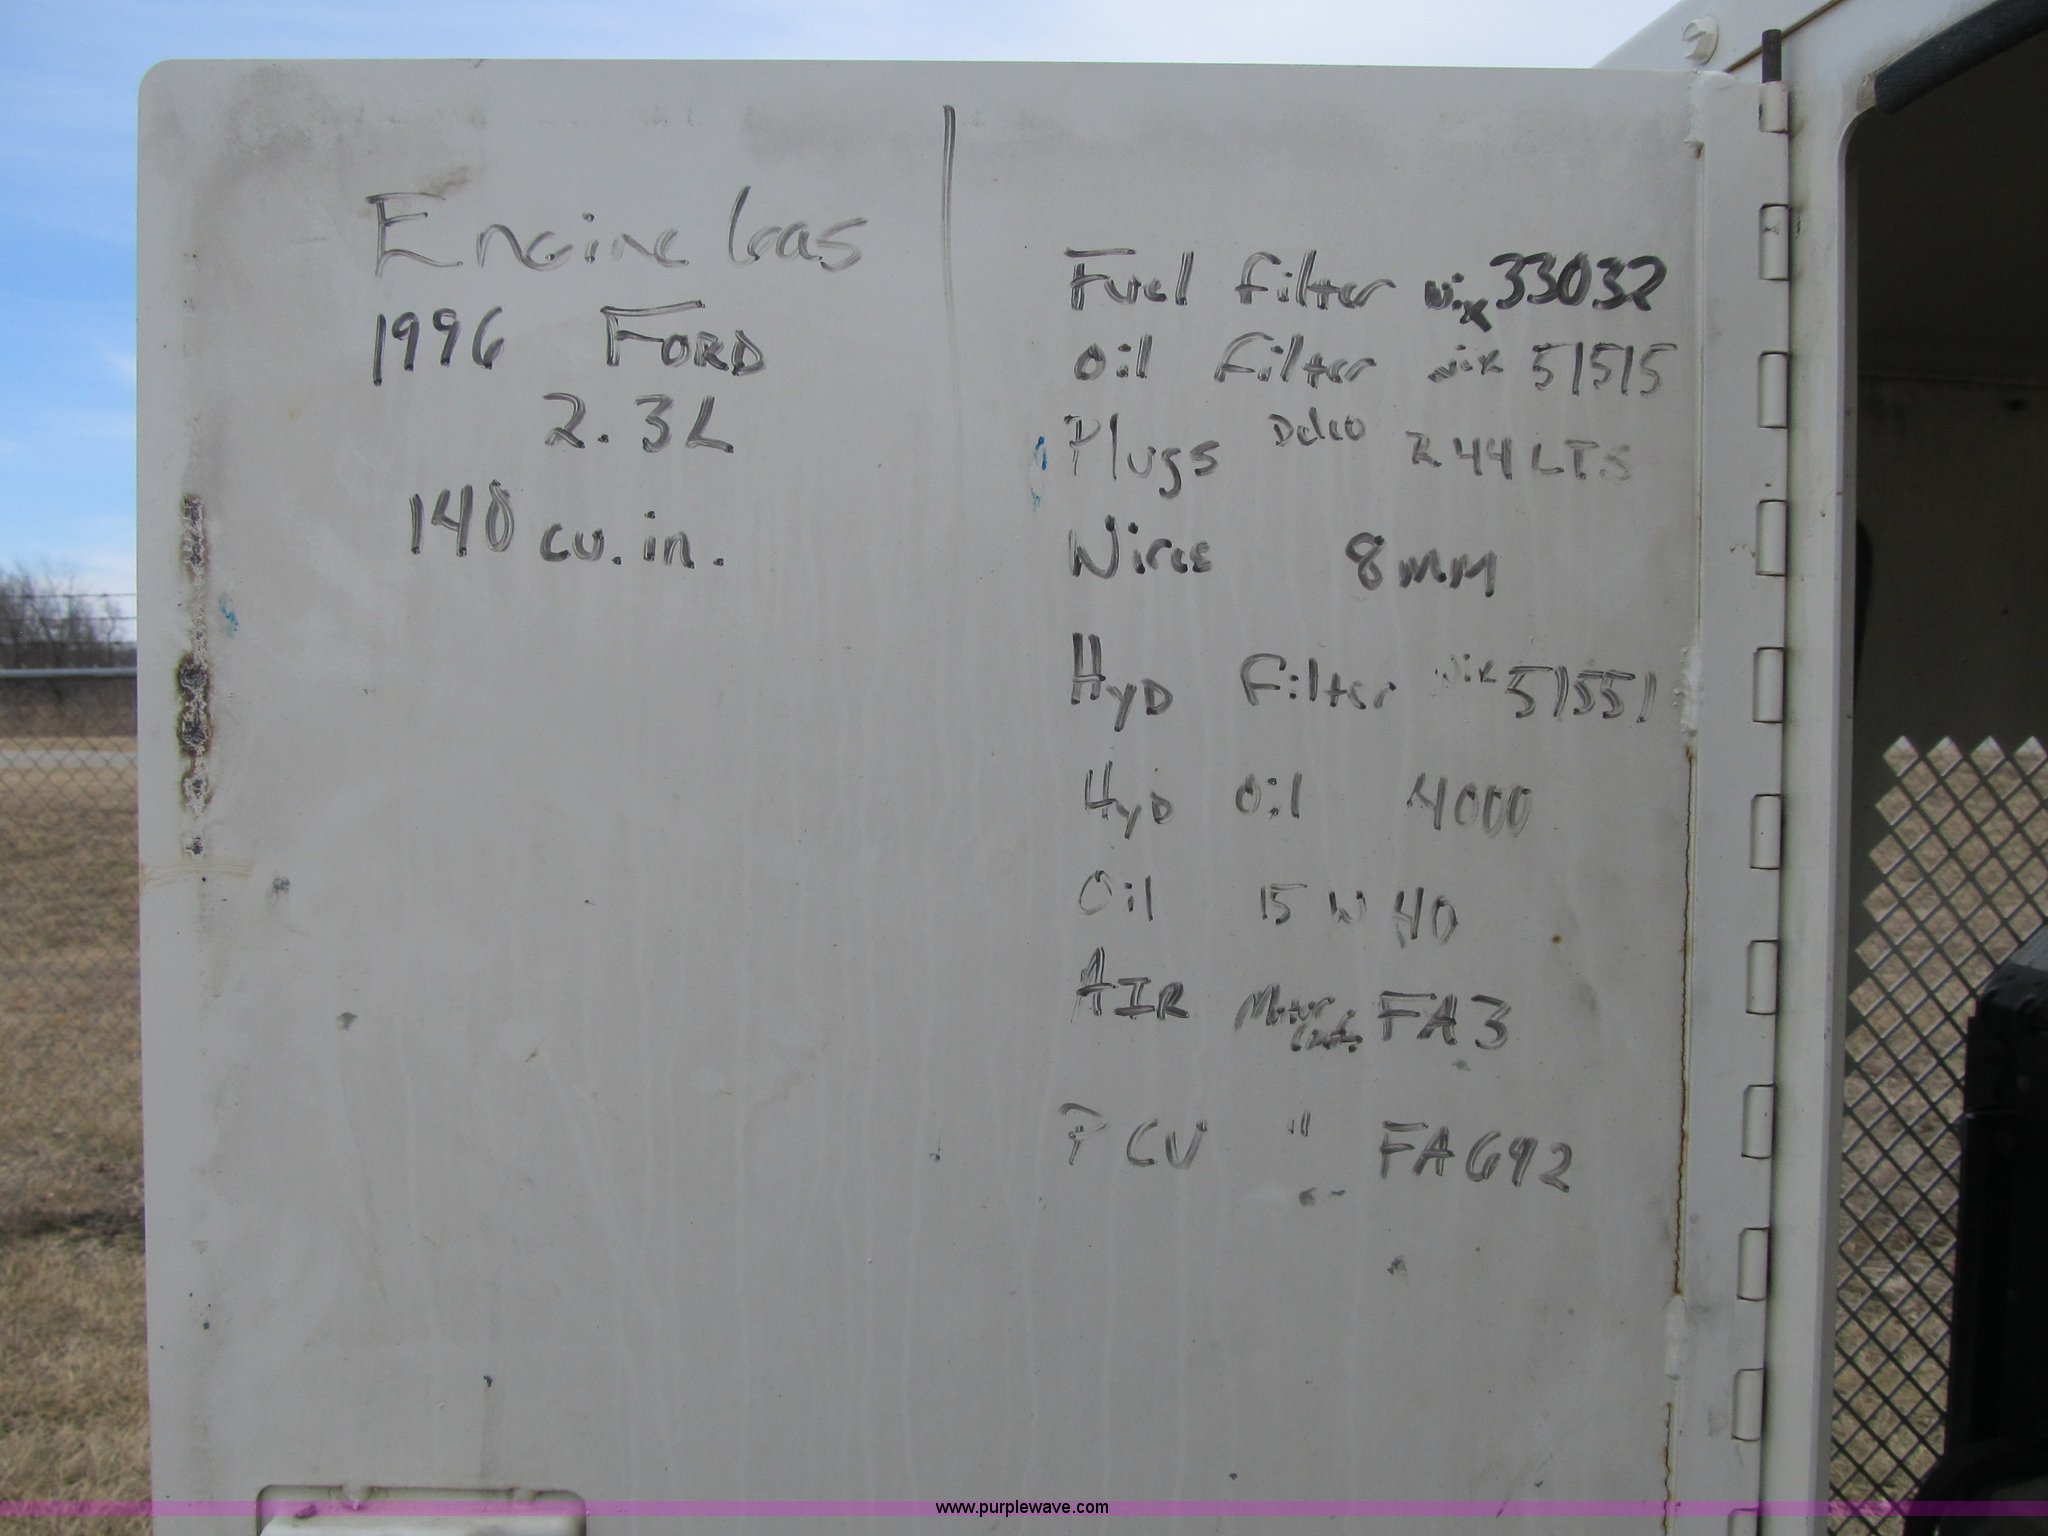 Engine Gas
1996 FORD
2.3L
140 cu. in.
Fuel Filter wix 33032
Oil Filter wix 51515
Plugs Delco R44LTS
Wires 8MM
HYD Filter wix 51551
HYD Oil 4000
Oil 15W40
AIR Motor Craft FA3
PCV " FA692
www.purplewave.com